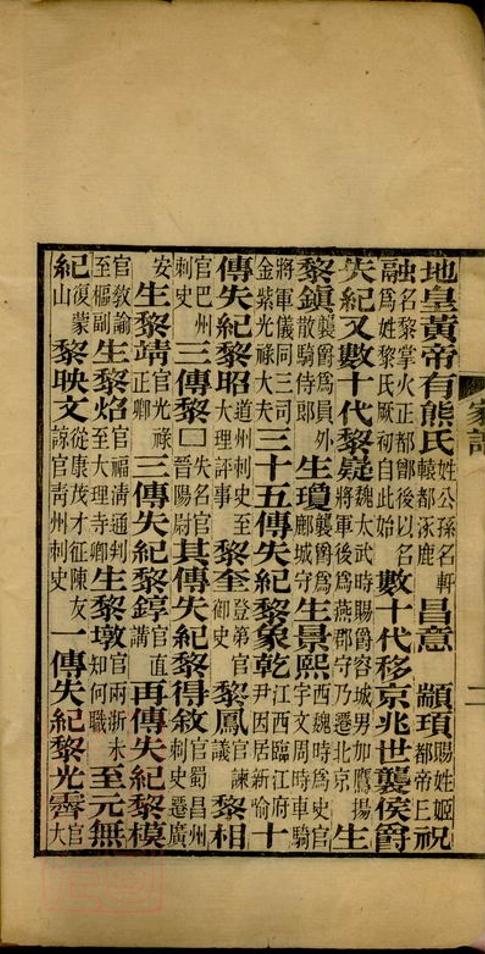 家譜
二
地皇黃帝有熊氏姓公孫名軒轅都涿鹿昌意 顓頊賜姓姬都帝王祝
融名黎掌火正都鄫後以名為姓黎氏厥初自此始數十代移京兆世襲侯爵
失紀又數十代黎嶷魏太武時賜爵容城男加鷹揚將軍後為燕郡守乃遷北京生
黎鎮襲爵為員外散騎侍郎生瓊襲爵為鄜城守生景熙西魏時為史官宇文周時車騎
將軍儀同三司金紫光祿大夫三十五傳失紀黎象乾江西臨江府尹因居新喻十
傳失紀黎昭道州刺史至大理評事黎奎登第官御史黎鳳官諫議黎相
官巴州刺史三傳黎囗失名官晉陽尉其傳失紀黎得敘官蜀昌州刺史遷廣
安生黎靖官光祿正卿三傳失紀黎錞官直講再傳失紀黎模
官教諭至樞副生黎焰官福清通判至大理寺卿生黎墩官兩浙未知何職至元無
紀復蒙山黎映文從康茂才征陳友諒官靑州刺史一傳失紀黎光霽官大